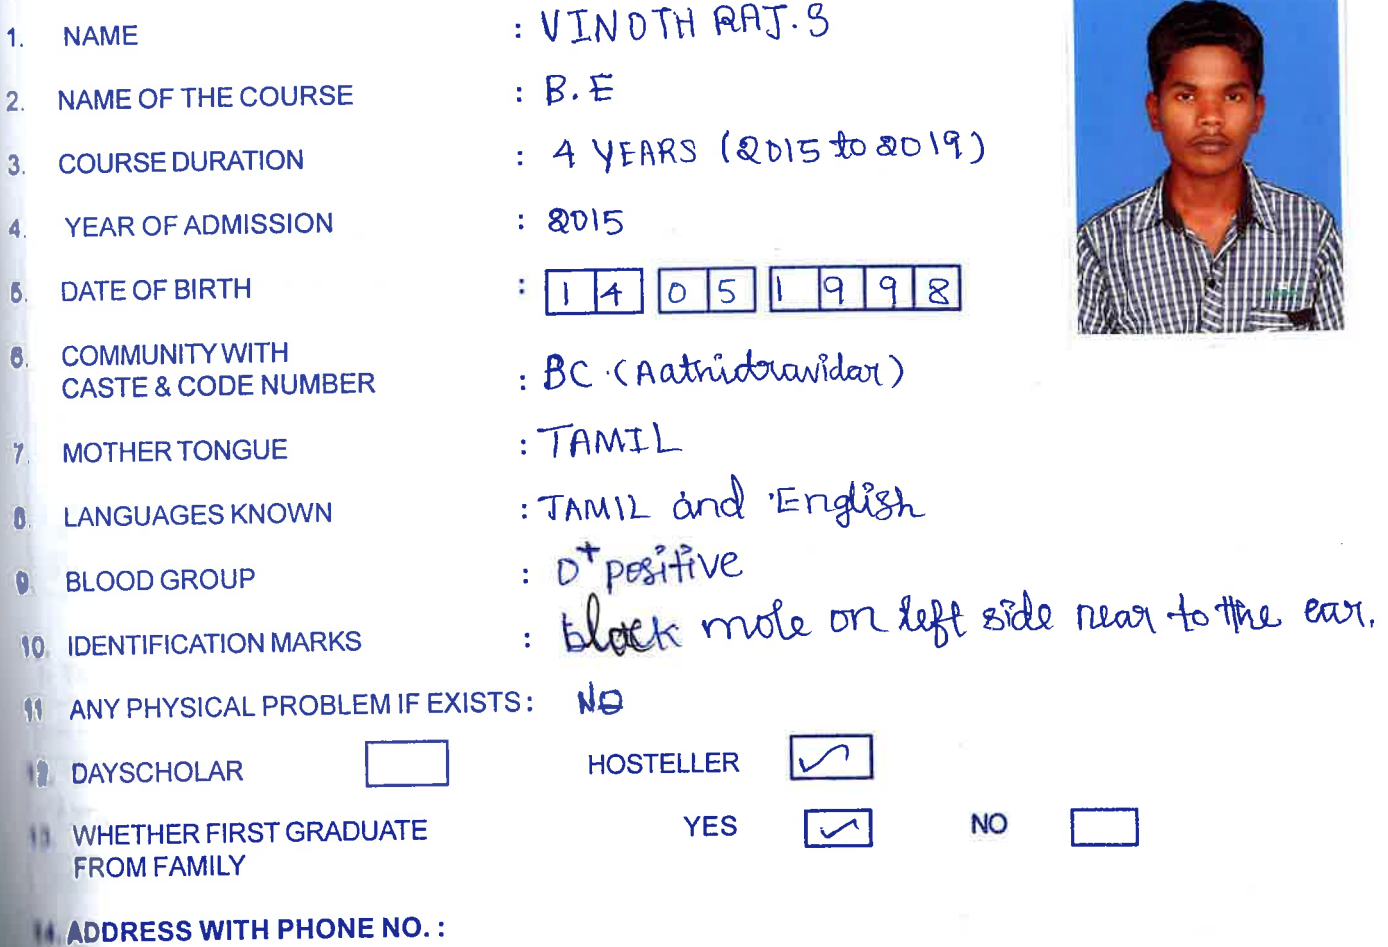 1. NAME : VINOTH RAJ. S
2. NAME OF THE COURSE : B.E
3. COURSE DURATION : 4 YEARS (2015 to 2019)
4. YEAR OF ADMISSION : 2015
5. DATE OF BIRTH : 14 05 1998
6. COMMUNITY WITH
CASTE & CODE NUMBER : BC (Aathidravidar)
7. MOTHER TONGUE : TAMIL
8. LANGUAGES KNOWN : TAMIL and English
9. BLOOD GROUP : O+ positive
10. IDENTIFICATION MARKS : black mole on left side near to the ear.
11 ANY PHYSICAL PROBLEM IF EXISTS : NO
12. DAYSCHOLAR HOSTELLER ✓
13. WHETHER FIRST GRADUATE YES ✓ NO
FROM FAMILY
14. ADDRESS WITH PHONE NO. :